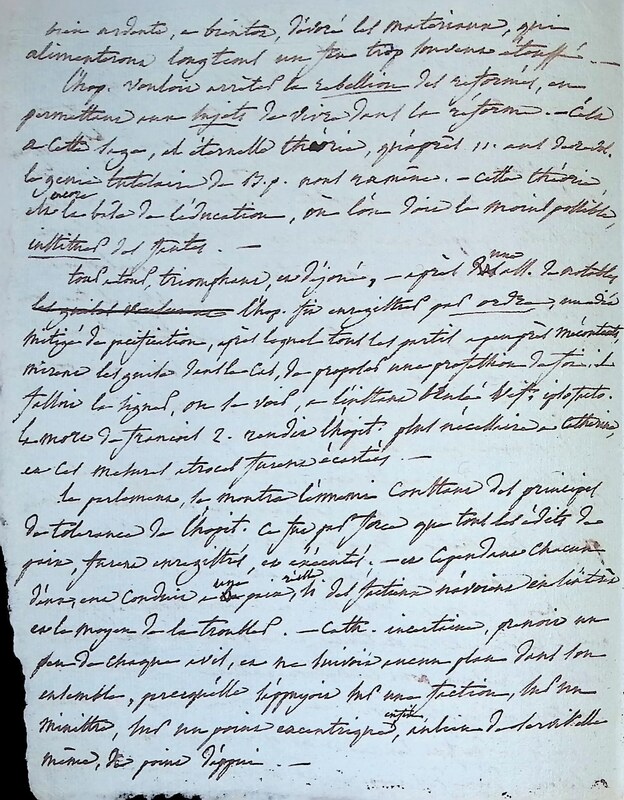 bien ardente, a bientot, dévoré les materiaux, qui
alimenteront longtems un feu trop souvent étouffé. —
L'hop. vouloit arreter la rebellion des reformés, en
permettant aux sujets de vivre dans la réforme. — Cela
a cette sage, et éternelle théorie, qu'après 11. ans de
le genie tutelaire de B.p. nous ramène. — cette théorie
est encore la base de l'éducation, où l'on doit le moins possible,
instituer des fautes. —
tous étons, triomphent, en — après une ass. de notables
l'hop. fit enregistrer par ordre, un édit
mitigé de pacification, après lequel tous les partis a peu près mécontents,
mirent les guise dans le cas, de proposer une profession de foi. il
falloit la signer, ou se voir, a l'instant
la mort de francois 2. rendit l'hopit. plus nécessaire a Catherine,
et ces mesures atroces furent écartées —
le parlement, se montra l'ennemi constant des principes
de tolerance de l'hopit. ce fut par force que tous les édits de
paix, furent enregistrés, et exécutés. — et cependant chacun
d'eux eut conduit a une paix réelle, si des facteurs n'avoient eu l'intérêt
et le moyen de la troubler. — Cath. incertaine, prenoit un
peu de chaque avis, et ne suivoit aucun plan dans son
ensemble, parcequ'elle s'appuyoit sur une faction, sur un
ministre, sur un point excentrique enfin, au lieu de se servir elle
même, de point d'appui. —